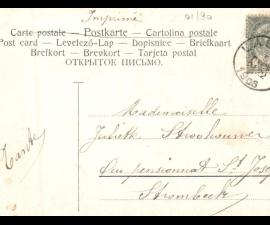 Imprimé 01/90
Carte postale — Postkarte — Cartolina postale
Post card — Levelező-Lap — Dopisnice — Briefkaart
Brefkort — Brevkort — Tarjeta postal
ОТКРЫТОЕ ПИСЬМО.
1908
Mademoiselle
Juliette Stroobuwer
Au pensionnat St Jose
Strombeek